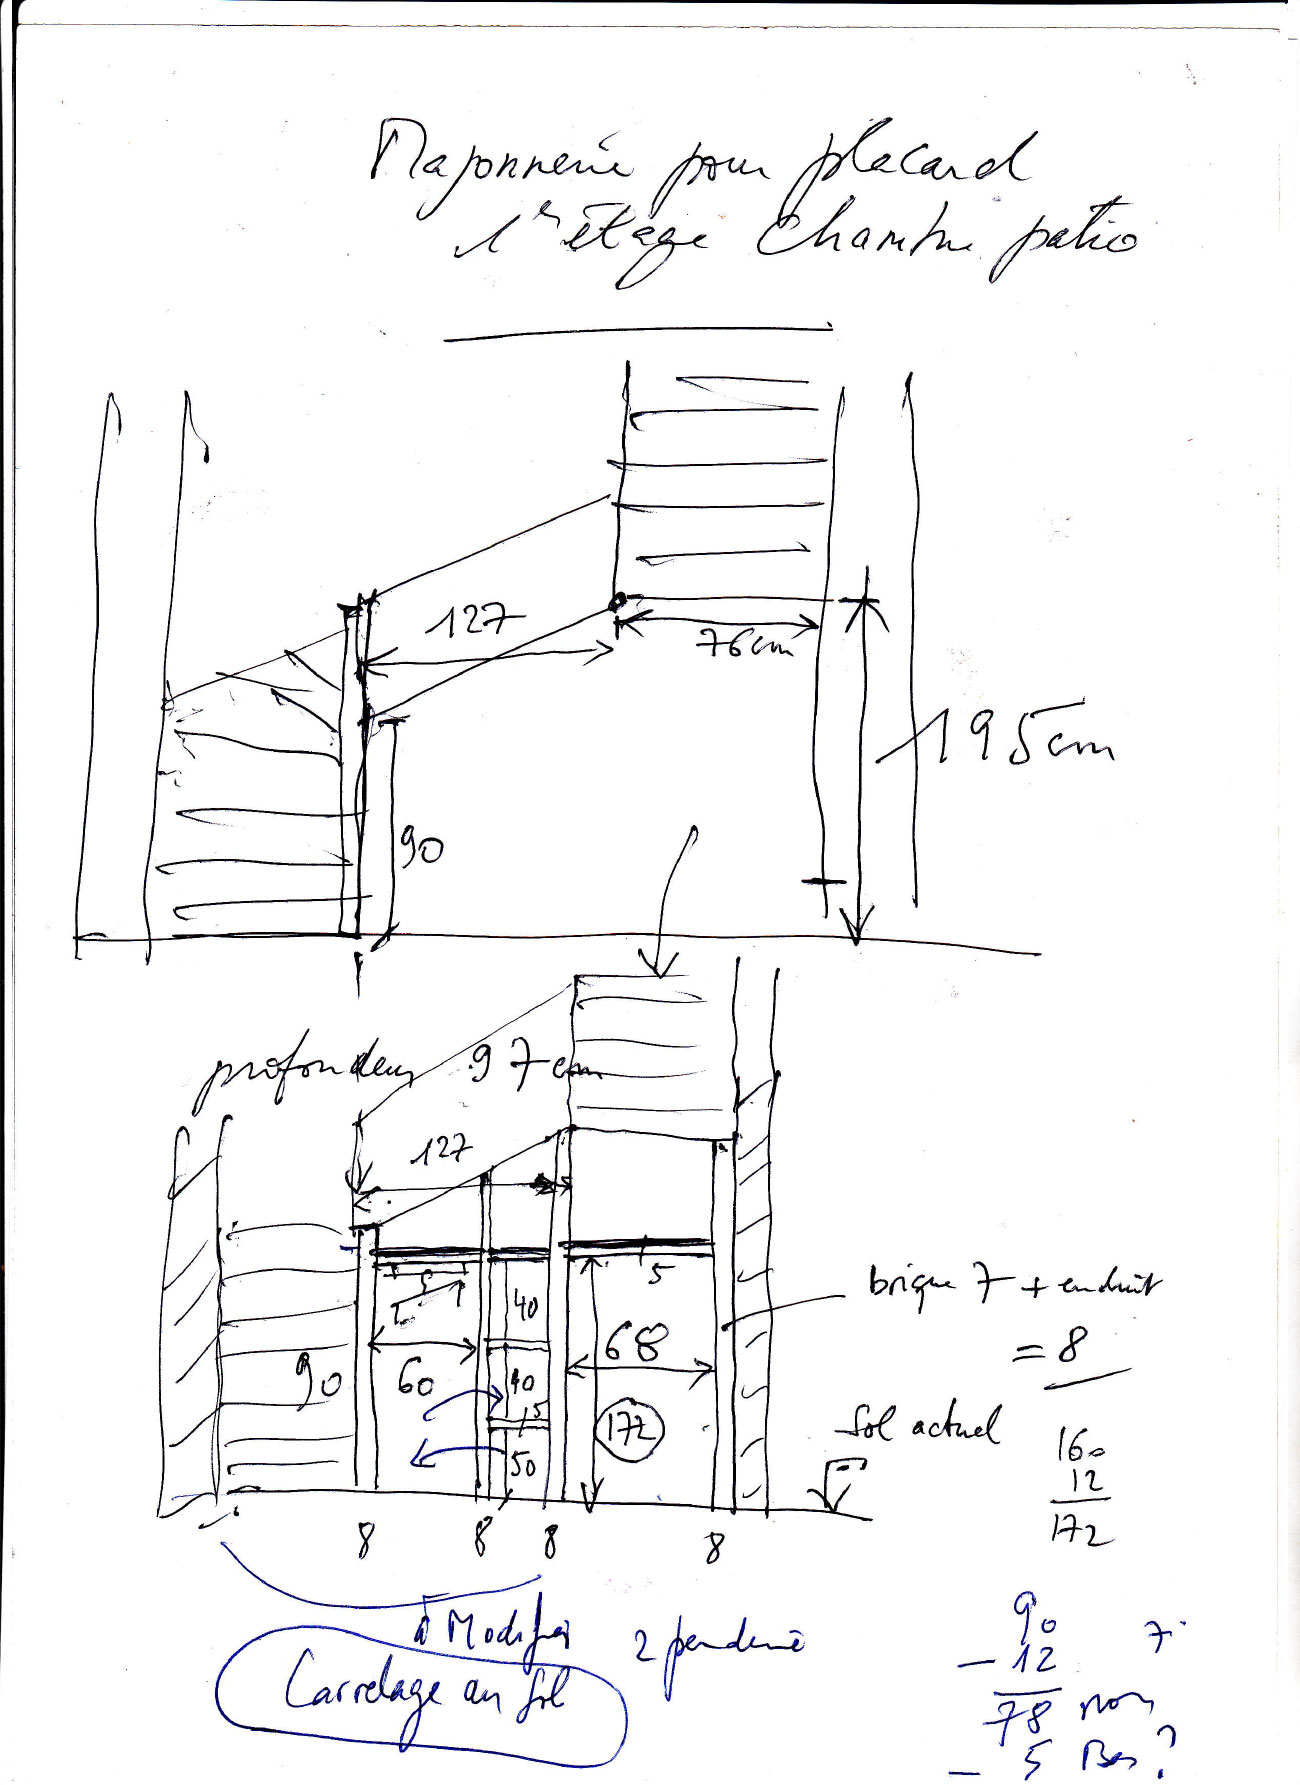 Maçonnerie pour placard
1er étage chambre patio
127
76cm
195cm
90
profondeur 97cm
127
5
40
5
brique 7 + enduit
= 8
68
90
60
40
5
172
50
Sol actuel
160
12
172
8 8 8 8
à Modifier
2 penderie
Carrelage au sol
90
- 12
78 non
- 5 Bas ?
7